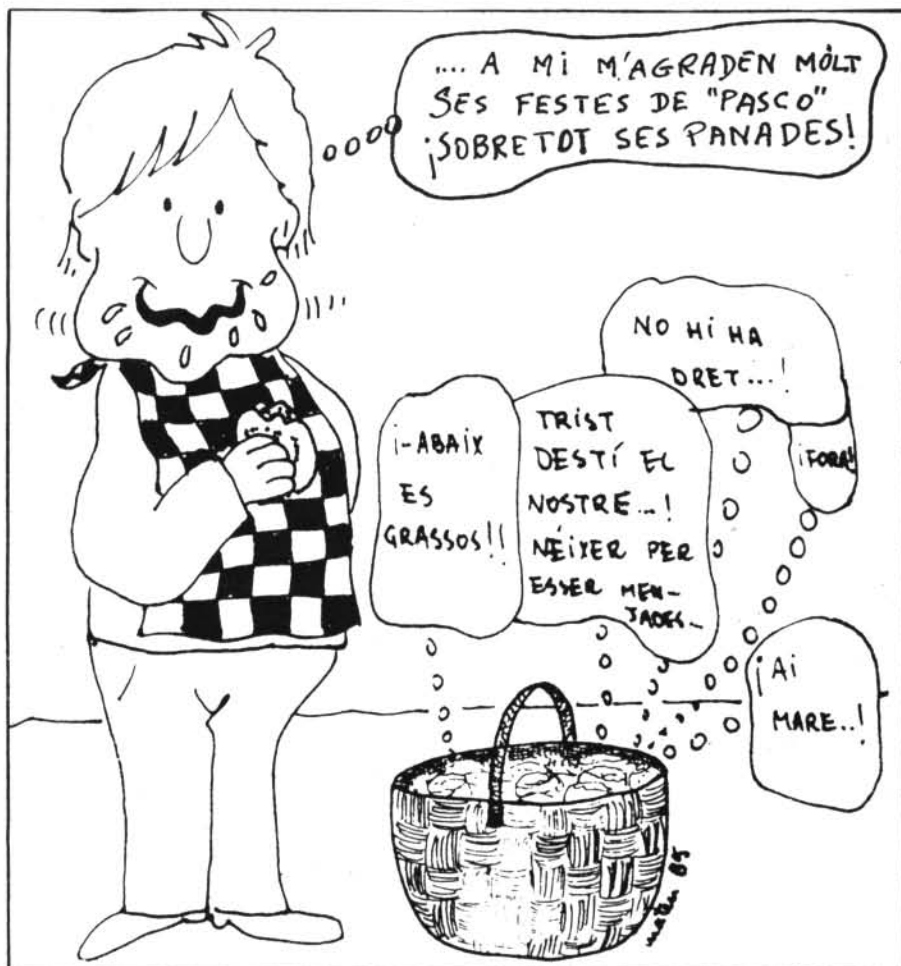 .... A MI M'AGRADEN MÒLT
SES FESTES DE "PASCO"
¡SOBRETOT SES PANADES!
NO HI HA
DRET...!
¡FORA!
¡-ABAIX
ES
GRASSOS!!
TRIST
DESTÍ EL
NOSTRE...!
NÉIXER PER
ESSER MEN-
JADES...
¡AI
MARE..!
85